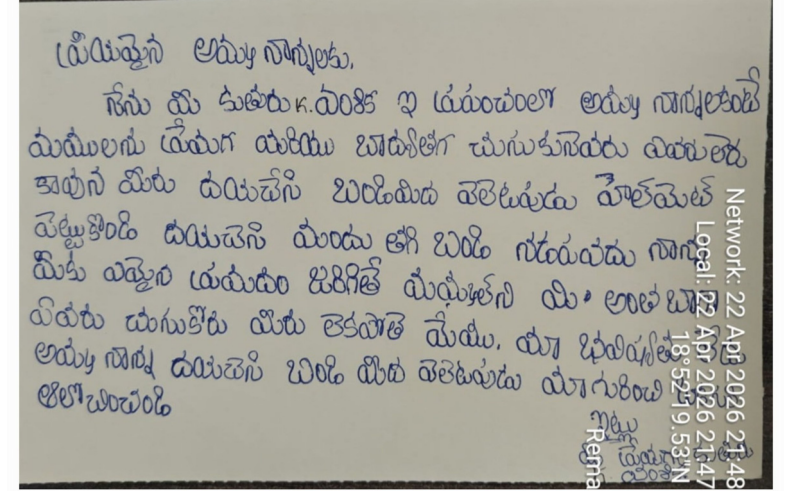 ప్రియమైన అమ్మ నాన్నలకు,
నేను మీ కుతురు K. వంశిక ఇ ప్రపంచంలో అమ్మ నాన్నలకంటే
మమ్ములను ప్రేమగ మరియు బాద్యతగ చుసుకునెవరు ఎవరులెరు
కావున మీరు దయచేసి బండిమిద వెలెటపుడు హెల్‌మెట్
పెట్టుకొండి దయచెసి మందు తగి బండి నడపవదు నాన్న
మీకు ఎమైన ప్రమదం జరిగితే మమ్మల్ని మి అంత బాగా
ఎవరు చుసుకోరు మిరు లెకపొతె మేము, మా భవిష్యతు లేదు
అమ్మ నాన్న దయచెసి బండి మిద వెలెటపుడు మా గురించి
ఆలోచించండి
ఇట్లు
Network: 22 Apr 2026 21:48
Local: 22 Apr 2026 21:47
18°52'19.53"N
Rema